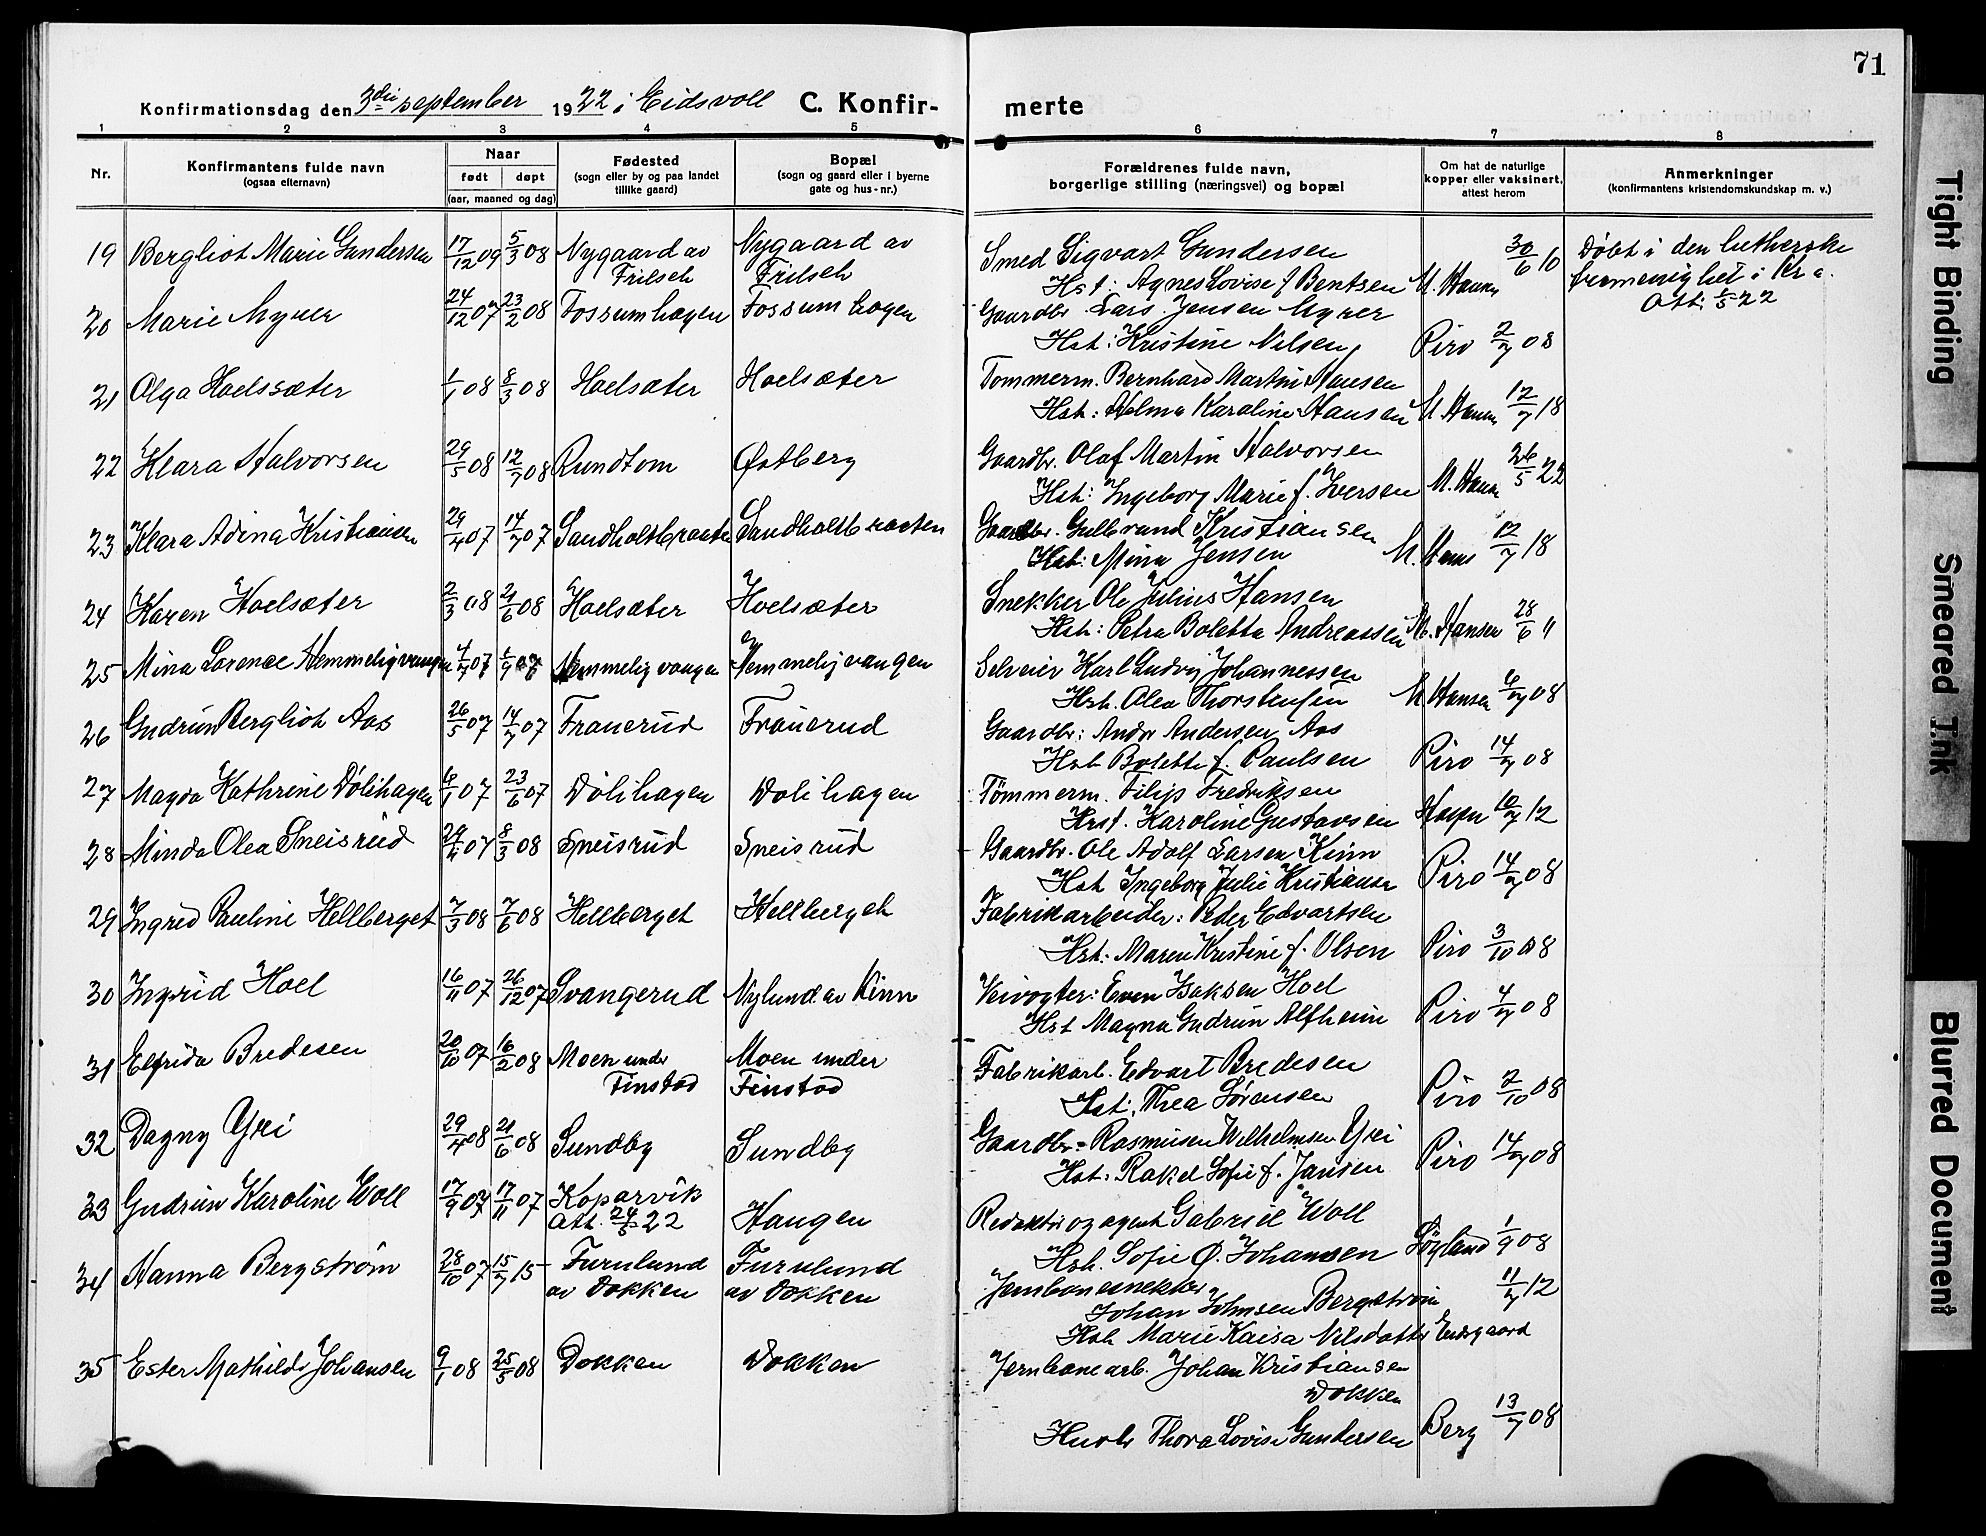 71
Konfirmationsdag den 3die september 1922 i Eidsvoll C. Konfir-
merte
1 2 3 4 5 6 7 8
Nr.
Konfirmantens fulde navn
(ogsaa efternavn)
Naar
født døpt
(aar, maaned og dag)
Fødested
(sogn eller by og paa landet
tillike gaard)
Bopæl
(sogn og gaard eller i byerne
gate og hus-nr.)
Forældrenes fulde navn,
borgerlige stilling (næringsvei) og bopæl
Om hat de naturlige
kopper eller vaksinert,
attest herom
Anmerkninger
(konfirmantens kristendomskundskap m. v.)
19 Bergliot Marie Gundersen 17/12 09 5/3 08 Nygaard av Nygaard av Smed Sigvart Gundersen 30/6 10 Døbt i den lutherske
Frilseth Frilseth Hst: Agnes Lovise f Bentsen M. Hansen frimenighet i Kr a.
20 Marie Myrer 24/12 07 23/2 08 Fossumhagen Fossumhagen Gaardbr. Lars Jensen Myrer Att. 1/5 22
Hst: Kristine Nilsen Piro 2/7 08
21 Olga Hoelssæter 1/1 08 8/3 08 Hoelsæter Hoelsæter Tømmerm. Bernhard Martin Hansen
Hst: Helma Karoline Hansen M. Hansen 12/7 18
22 Klara Halvorsen 29/5 08 12/7 08 Rundtom Østberg Gaardbr. Olaf Martin Halvorsen
Hst: Ingeborg Marie f. Iversen M. Hansen 26/5 22
23 Klara Adina Kristiansen 29/4 07 14/7 07 Sandholtbraaten Sandholtbraaten Gaardbr. Gulbrand Kristiansen
Hst: Mina Jensen M. Hans 12/7 18
24 Karen Hoelsæter 2/3 08 21/6 08 Hoelsæter Hoelsæter Snekker Ole Julius Hansen
Hst: Petra Boletta Andreassen M. Hansen 28/6 11
25 Mina Lorence Hemmeligvangen 4/7 07 1/9 07 Hemmeligvangen Hemmeligvangen Selveier Karl Ludvig Johannessen
Hst. Olea Thorstensen M Hansen 6/7 08
26 Gudrun Bergliot Aas 26/5 07 14/7 07 Frauerud Frauerud Gaardbr: Andr Andersen Aas
Hst Bolette f. Paulsen Piro 14/7 08
27 Magda Kathrine Dølihagen 6/1 07 23/6 07 Dølihagen Dølihagen Tømmerm. Filip Fredriksen
Hst. Karoline Gustavsen 10/7 12
28 Minda Olea Sneisrud 29/4 07 8/3 08 Sneisrud Sneisrud Gaardbr. Ole Adolf Larsen Kinn
Hst Ingeborg Julie Kristiansen Piro 14/7 08
29 Ingrid Pauline Hellberget 7/3 08 7/6 08 Hellberget Hellberget Fabrikarbeider: Peder Edvartsen
Hst: Maren Kristine f. Olsen Piro 3/10 08
30 Ingrid Hoel 16/11 07 26/12 07 Svangerud Nylund av Kinn Veivogter: Even Isaksen Hoel
Hst Magna Gudrun Alfheim Piro 4/7 08
31 Elfrida Bredesen 20/10 07 16/2 08 Moen under Moen under Fabrikarb. Edvart Bredesen
Finstad Finstad Hst: Thea Sørensen Piro 2/10 08
32 Dagny Yri 29/4 08 21/6 08 Sundby Sundby Gaardbr: Rasmusen Wilhelmsen Yri
Hst: Rakel Sofie f. Jansen Piro 14/7 08
33 Gudrun Karoline Woll 17/9 07 17/11 07 Kopervik Redaktør og agent Gabriel Woll
Att. 24/5 22 Haugen Hst. Sofie O. Johansen Søyland 1/9 08
34 Hanna Bergstrøm 28/10 07 15/7 15 Furulund Furulund 11/7 12
av Dokken av Dokken Johan Johnsen Bergstrøm
Hst Marie Kaisa Nilsdatter
35 Ester Mathilde Johansen 9/1 08 25/5 08 Dokken Dokken Jernbanearb. Johan Kristiansen
Dokken
Hustr Thora Lovise Gundersen Berg 13/7 08
Tight Binding
Smeared Ink
Blurred Document